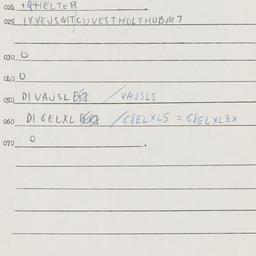 024 +QHELTER
025 IXVEUSNITCUVESTHOLTHOBM7
030 O
040 O
050 DIVAUSL /VAUSLS
060 DIGELXL /G8ELXLS = G8ELXL3X
070 O